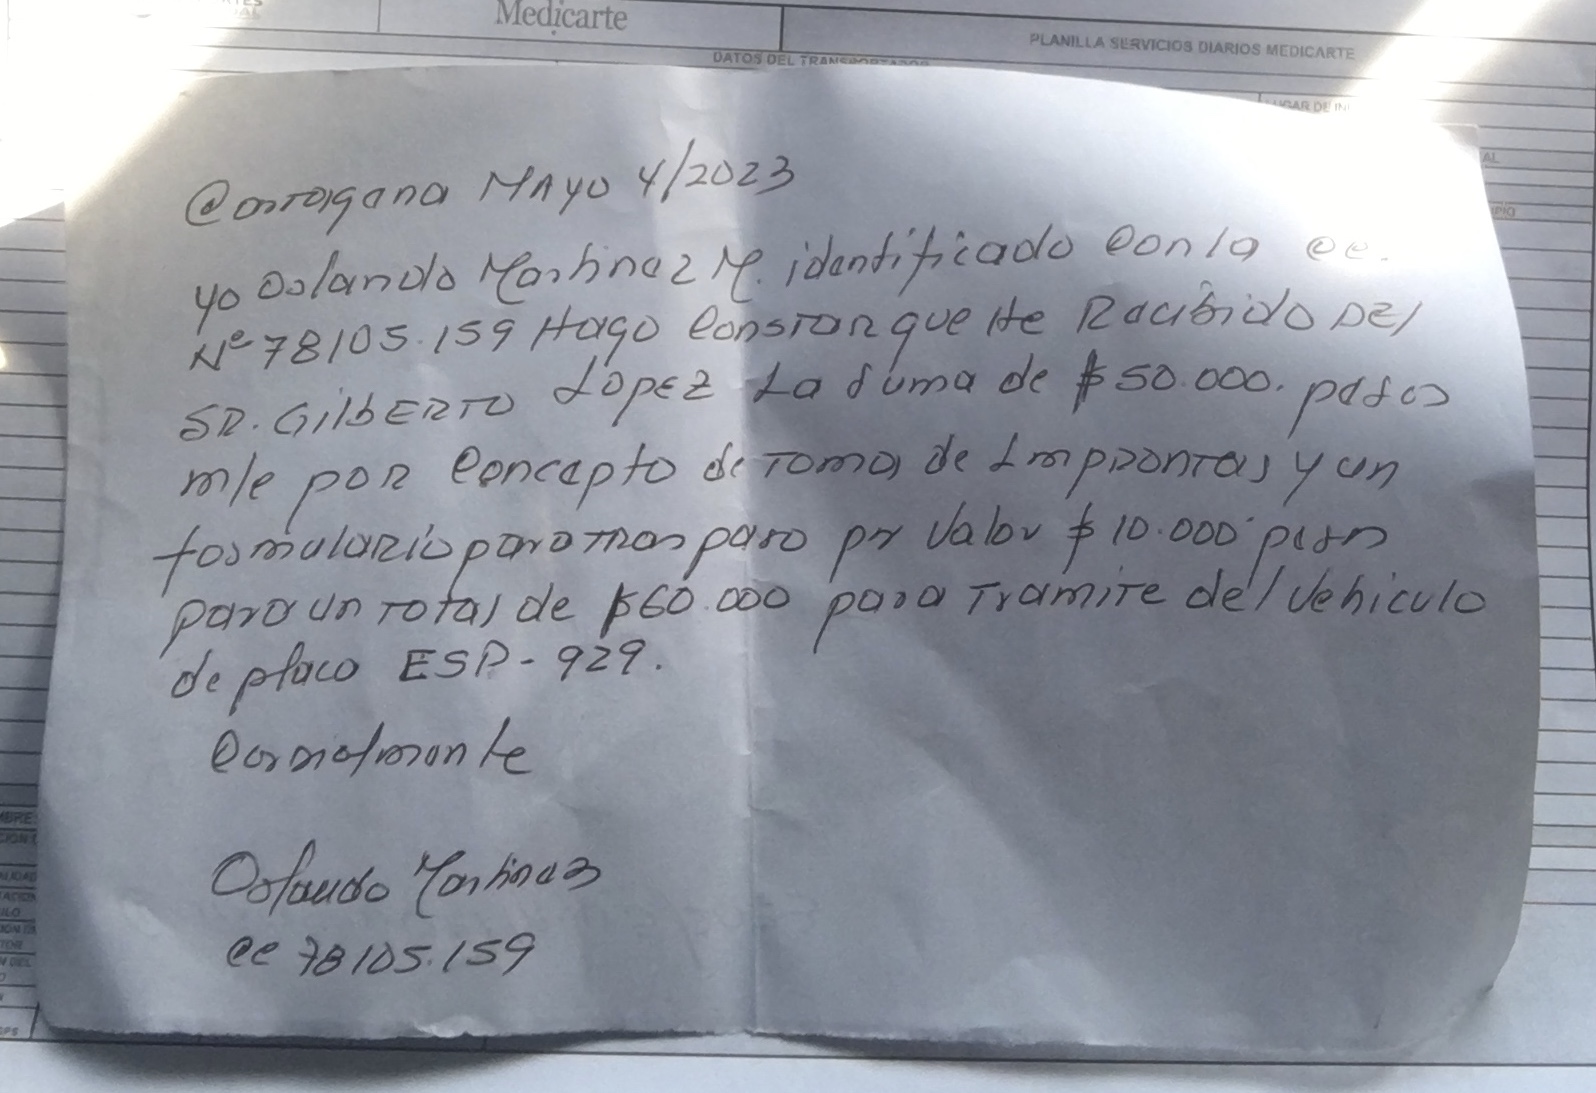 Medicarte
PLANILLA SERVICIOS DIARIOS MEDICARTE
DATOS DEL TRANSPORTADOR
LUGAR DE INI
Cartagena MAYO 4/2023
yo Orlando Martinez M. identificado con la cc.
Nº 78105.159 Hago constar que He Recibido DEl
SR. GilbERTO LopEz La suma de $50.000. pesos
m/c por concepto de Toma de Improntas y un
formulario para traspaso por valor $10.000 pesos
para un Total de $60.000 para Tramite del Vehiculo
de placa ESP-929.
Cordialmente
Orlando Martinez
cc 78105.159